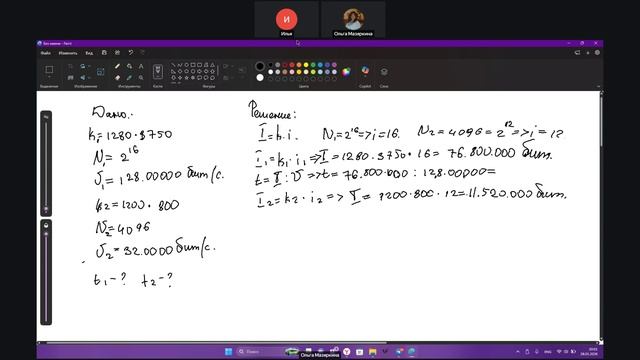 И
Илья
Ольга Мазяркина
Без имени - Paint
Файл Изменить Вид
Выделение Изображение Инструменты Кисти Фигуры Цвета Copilot Слои
Дано:
k₁=1280·3750
N₁=2¹⁶
V₁=128.00000 бит/с.
k₂=1200·800
N₂=4096
V₂=32.0000 бит/с.
t₁-? t₂-?
Решение:
I=k·i. N₁=2¹⁶=>i=16. N₂=4096=2¹²=>i=12
I₁=k₁·i₁=>I=1280·3750·16=76.800.000 бит.
t=I:V=>t=76.800.000:128.00000=
I₂=k₂·i₂=>I=1200·800·12=11.520.000 бит.
Поиск
Ольга Мазяркина
28.05.2024